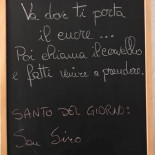 Va dove ti porta
il cuore...
Poi chiama il cervello
e fatti venire a prendere.
SANTO DEL GIORNO:
San Siro